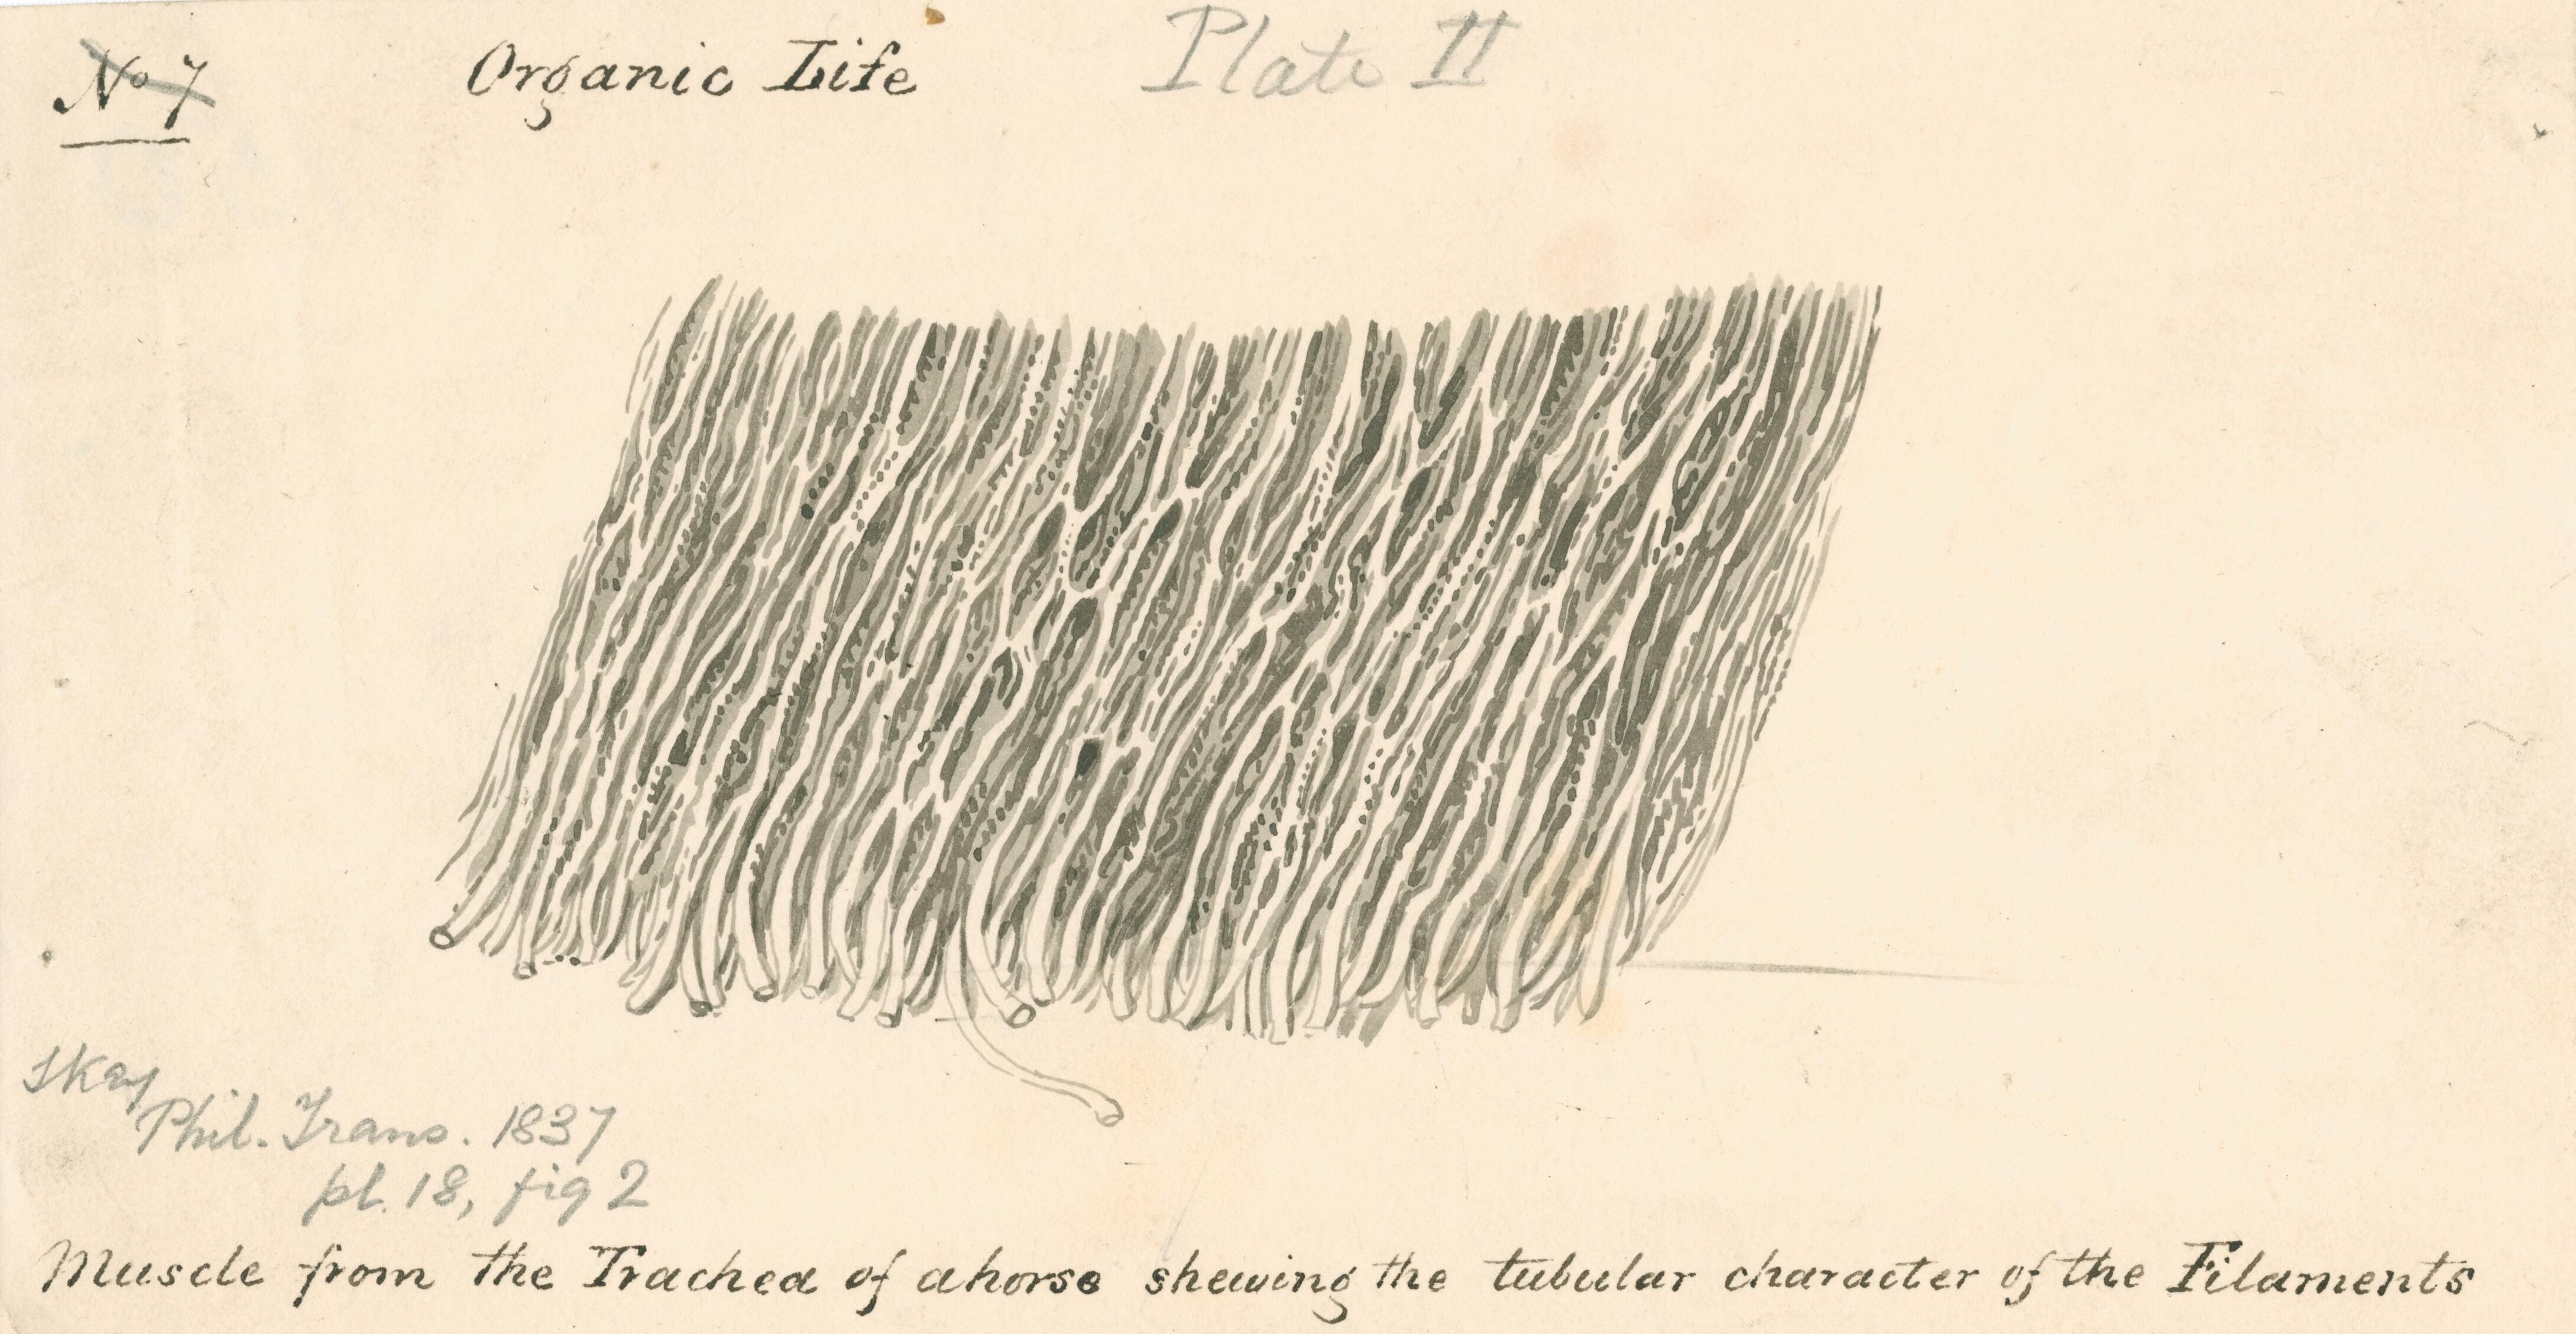 No 7 Organic Life Plate II
Skey
Phil. Trans. 1837
pl. 18, fig 2
Muscle from the Trachea of a horse shewing the tubular character of the Filaments